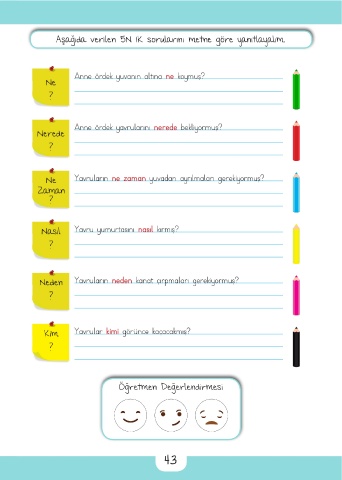 Aşağıda verilen 5N 1K sorularını metne göre yanıtlayalım.
Ne
?
Anne ördek yuvanın altına ne koymuş?
Nerede
?
Anne ördek yavrularını nerede bekliyormuş?
Ne
Zaman
?
Yavruların ne zaman yuvadan ayrılmaları gerekiyormuş?
Nasıl
?
Yavru yumurtasını nasıl kırmış?
Neden
?
Yavruların neden kanat çırpmaları gerekiyormuş?
Kim
?
Yavrular kimi görünce kaçacakmış?
Öğretmen Değerlendirmesi
43